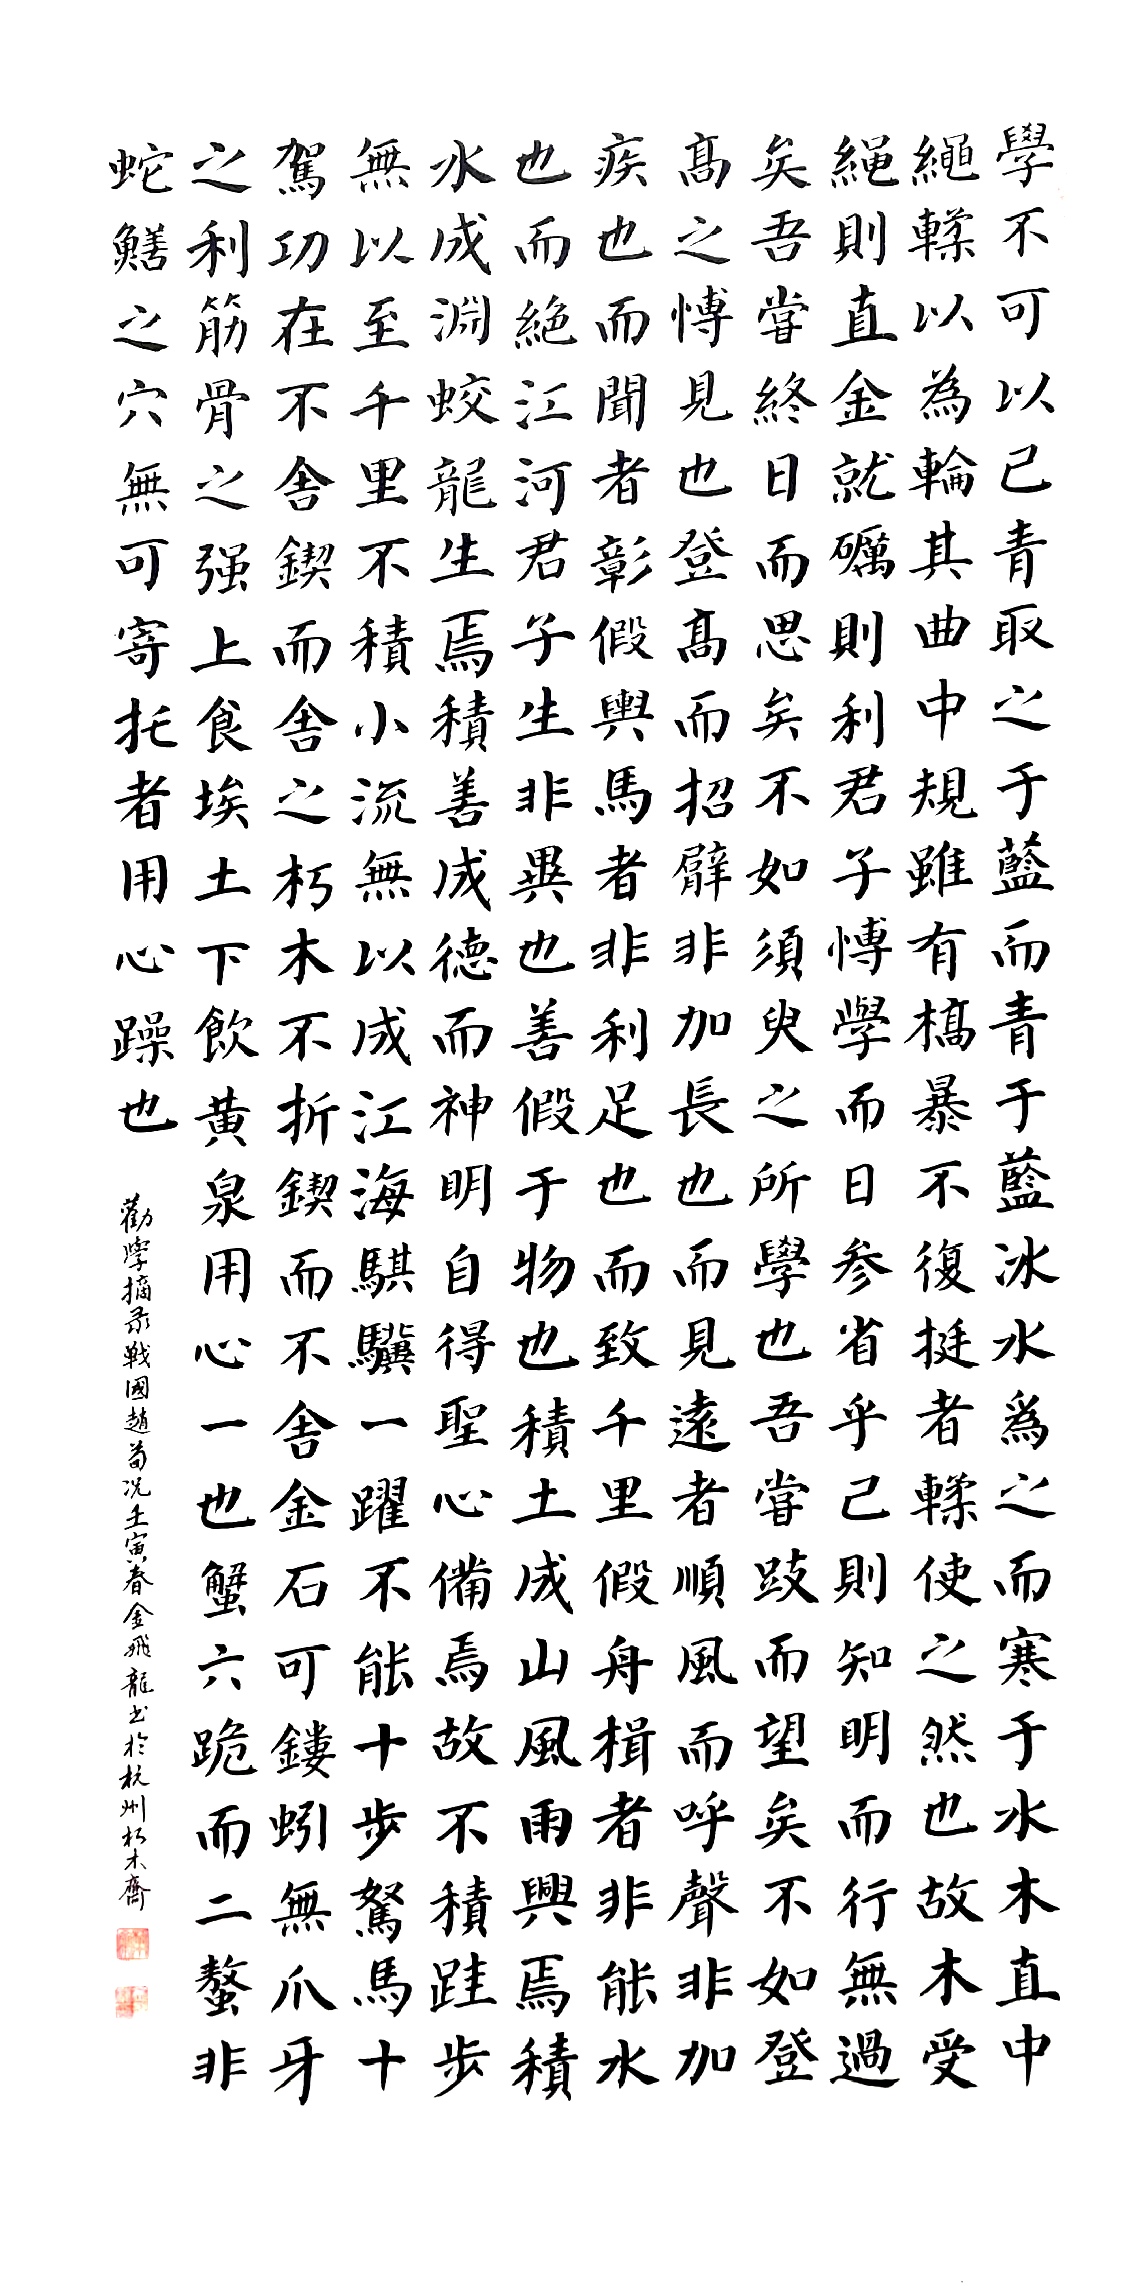 學不可以已青取之于藍而青于藍冰水為之而寒于水木直中
繩輮以為輪其曲中規雖有槁暴不復挺者輮使之然也故木受
繩則直金就礪則利君子博學而日参省乎己則知明而行無過
矣吾嘗終日而思矣不如須臾之所學也吾嘗跂而望矣不如登
髙之博見也登髙而招臂非加長也而見遠者順風而呼聲非加
疾也而聞者彰假輿馬者非利足也而致千里假舟楫者非能水
也而絕江河君子生非異也善假于物也積土成山風雨興焉積
水成淵蛟龍生焉積善成德而神明自得聖心備焉故不積跬步
無以至千里不積小流無以成江海騏驥一躍不能十步駑馬十
駕功在不舍鍥而舍之朽木不折鍥而不舍金石可鏤蚓無爪牙
之利筋骨之强上食埃土下飲黄泉用心一也蟹六跪而二螯非
蛇鱔之穴無可寄托者用心躁也
勸學摘录戰國趙荀况壬寅春金飛龍书於杭州朽木齋